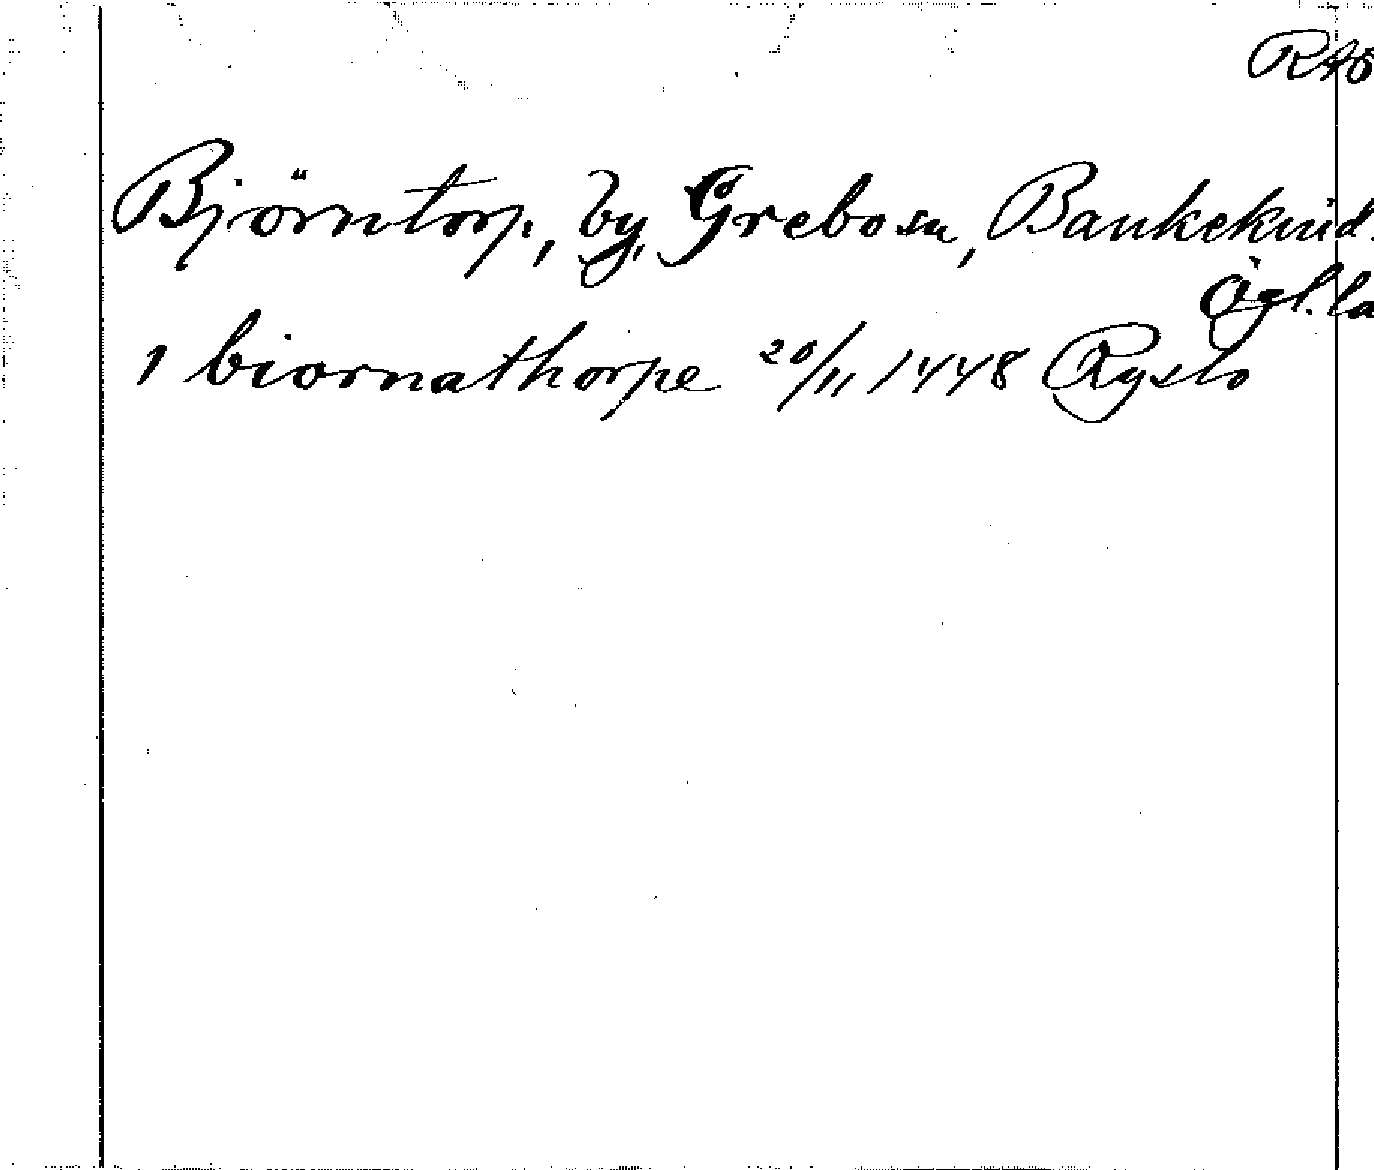 RAO
Björntorp, by, Grebo sn, Bankekind
Ögl. la
1 biornathorpe 20/11 1448 Rystо